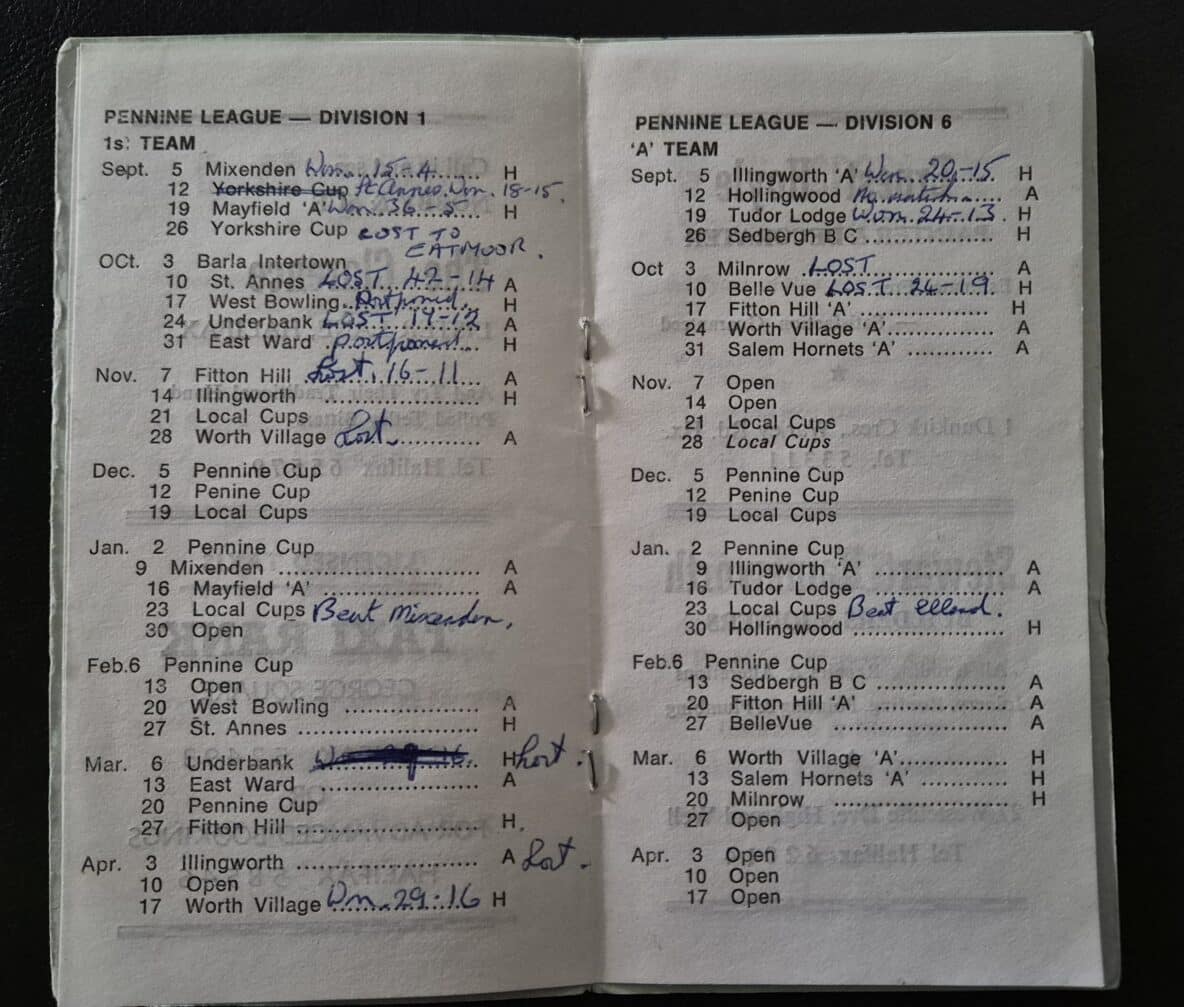 PENNINE LEAGUE — DIVISION 1
1st TEAM
Sept. 5 Mixenden Won 15-4 H
12 Yorkshire Cup St Annes Won 18-15
19 Mayfield 'A' Won 36-5 H
26 Yorkshire Cup LOST TO
EATMOOR.
OCt. 3 Barla Intertown
10 St. Annes LOST 42-14 A
17 West Bowling Postponed H
24 Underbank LOST 14-12 A
31 East Ward Postponed H
Nov. 7 Fitton Hill Lost 16-11 A
14 Illingworth H
21 Local Cups
28 Worth Village Lost A
Dec. 5 Pennine Cup
12 Penine Cup
19 Local Cups
Jan. 2 Pennine Cup
9 Mixenden A
16 Mayfield 'A' A
23 Local Cups Beat Mixenden.
30 Open
Feb.6 Pennine Cup
13 Open
20 West Bowling A
27 St. Annes H
Mar. 6 Underbank H Lost.
13 East Ward A
20 Pennine Cup
27 Fitton Hill H.
Apr. 3 Illingworth A Lost.
10 Open
17 Worth Village Won 29-16 H
PENNINE LEAGUE — DIVISION 6
'A' TEAM
Sept. 5 Illingworth 'A' Won 20-15 H
12 Hollingwood No match A
19 Tudor Lodge Won 24-13. H
26 Sedbergh B C H
Oct 3 Milnrow LOST A
10 Belle Vue LOST 24-19. H
17 Fitton Hill 'A' H
24 Worth Village 'A' A
31 Salem Hornets 'A' A
Nov. 7 Open
14 Open
21 Local Cups
28 Local Cups
Dec. 5 Pennine Cup
12 Penine Cup
19 Local Cups
Jan. 2 Pennine Cup
9 Illingworth 'A' A
16 Tudor Lodge A
23 Local Cups Beat Elland.
30 Hollingwood H
Feb.6 Pennine Cup
13 Sedbergh B C A
20 Fitton Hill 'A' A
27 BelleVue A
Mar. 6 Worth Village 'A' H
13 Salem Hornets 'A' H
20 Milnrow H
27 Open
Apr. 3 Open
10 Open
17 Open